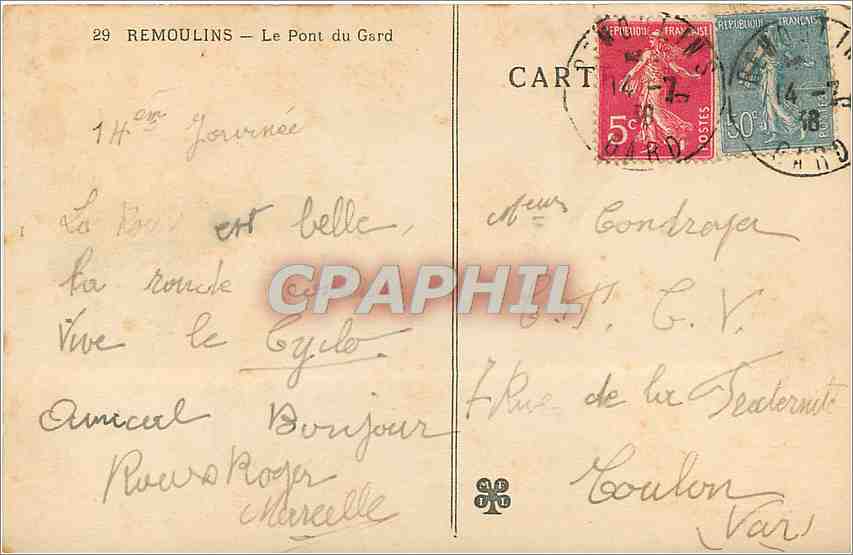 29 REMOULINS — Le Pont du Gard
14em Journée
La est belle,
la ronde
Vive le Cyclo
Amical Bonjour
Roger
Marcelle
CART
RÉPUBLIQUE FRANÇAISE
5c
POSTES
RÉPUBLIQUE FRANÇAISE
50c
14 -7
38
GARD
14 -7
38
GARD
CPAPHIL
Meur
C. V.
7 Rue de la Fraternité
Toulon
(Var)
M F I L